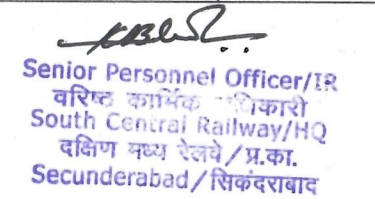 Senior Personnel Officer/IR
वरिष्ठ कार्मिक
South Central Railway/HQ
दक्षिण मध्य रेलवे/प्र.का.
Secunderabad/सिकंदराबाद